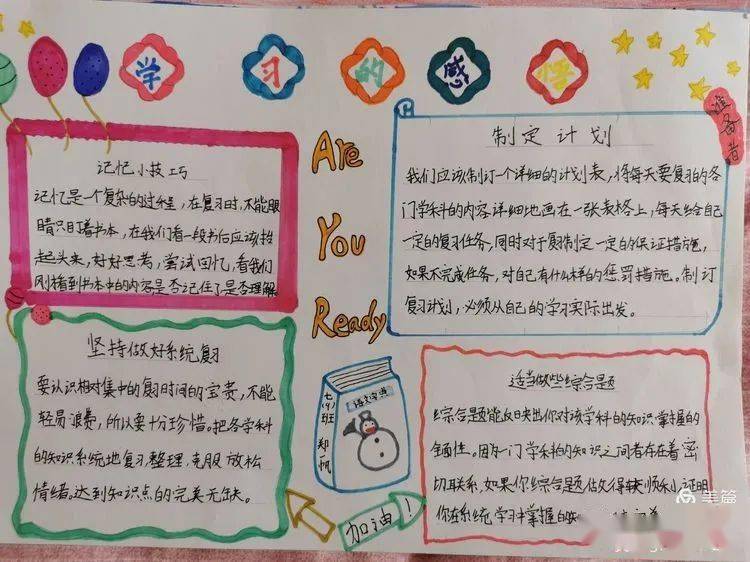 学习的感悟
准备者
记忆小技巧
记忆是一个复杂的过程，在复习时，不能眼
睛只盯着书本，在我们看一段书后应该抬
起头来，好好思考，尝试回忆，看我们
刚才看到书本中的内容是否记住了是否理解
Are
You
Ready
制定计划
我们应该制订一个详细的计划表，将每天要复习的各
门学科的内容详细地画在一张表格上，每天给自己
一定的复习任务，同时对于复制定一定的保证措施，
如果不完成任务，对自己有什么样的惩罚措施。制订
复习计划，必须从自己的学习实际出发。
坚持做好系统复习
要认识相对集中的复习时间的宝贵，不能
轻易浪费，所以要十分珍惜。把各学科
的知识系统地复习整理，克服放松
情绪。达到知识点的完美无缺。
七(9)班
郑一帆
加油！
适当做些综合题
综合题能反映出你对该学科的知识掌握的
全面性。因为一门学科的知识之间存在着密
切联系，如果你综合题做得较顺利，证明
你在系统学习中掌握的
美篇